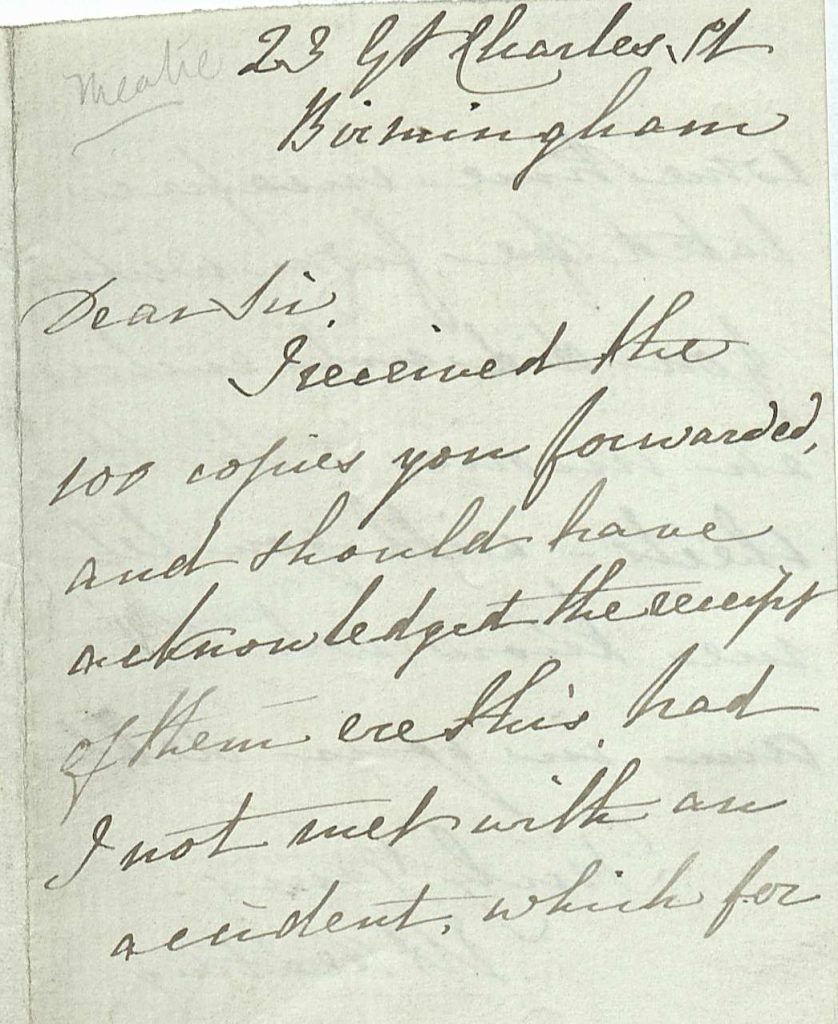 23 Gt Charles St
Birmingham
Dear Sir,
I received the
100 copies you forwarded,
and should have
acknowledged the receipt
of them ere this, had
I not met with an
accident, which for